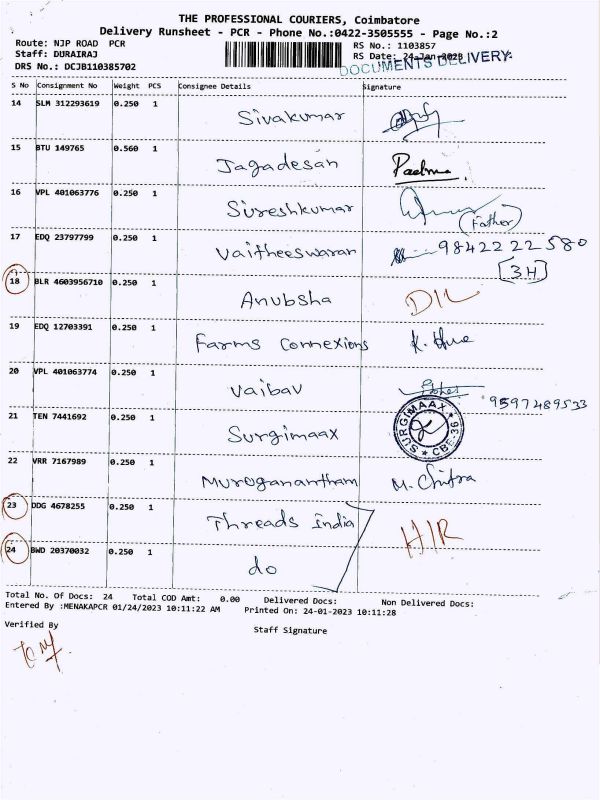 THE PROFESSIONAL COURIERS, Coimbatore
Delivery Runsheet - PCR - Phone No.:0422-3505555 - Page No.:2
Route: NJP ROAD PCR
RS No.: 1103857
Staff: DURAIRAJ
RS Date: 24-Jan-2023
DOCUMENTS DELIVERY
DRS No.: DCJB110385702
S No Consignment No Weight PCS Consignee Details Signature
14 SLM 312293619 0.250 1 Sivakumar
15 BTU 149765 0.560 1 Jagadesan Padma
16 VPL 401063776 0.250 1 Sureshkumar (Father)
17 EDQ 23797799 0.250 1 Vaitheeswaran 9842222580
[3H]
18 BLR 4603956710 0.250 1 Anubsha D/L
19 EDQ 12703391 0.250 1 Farms Connexions K.
20 VPL 401063774 0.250 1 Vaibav
9597489533
21 TEN 7441692 0.250 1 Surgimaax SURGIMAAX ★ CBE-36 ★
22 VRR 7167989 0.250 1 Muroganantham M. Chitra
23 DDG 4678255 0.250 1 Threads India H/R
24 BWD 20370032 0.250 1 do
Total No. Of Docs: 24 Total COD Amt: 0.00 Delivered Docs: Non Delivered Docs:
Entered By :MENAKAPCR 01/24/2023 10:11:22 AM Printed On: 24-01-2023 10:11:28
Verified By
Staff Signature